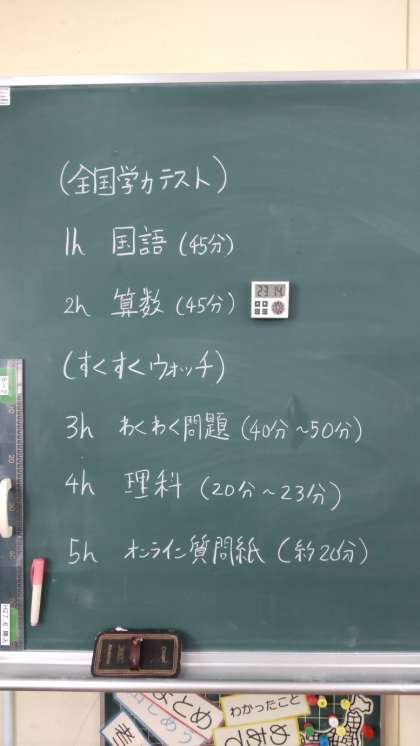 (全国学力テスト)
1h 国語 (45分)
2h 算数 (45分)
23 14
(すくすくウォッチ)
3h わくわく問題 (40分～50分)
4h 理科 (20分～23分)
5h オンライン質問紙 (約20分)
H27.6 購入
まとめ
わかったこと
めあて
考